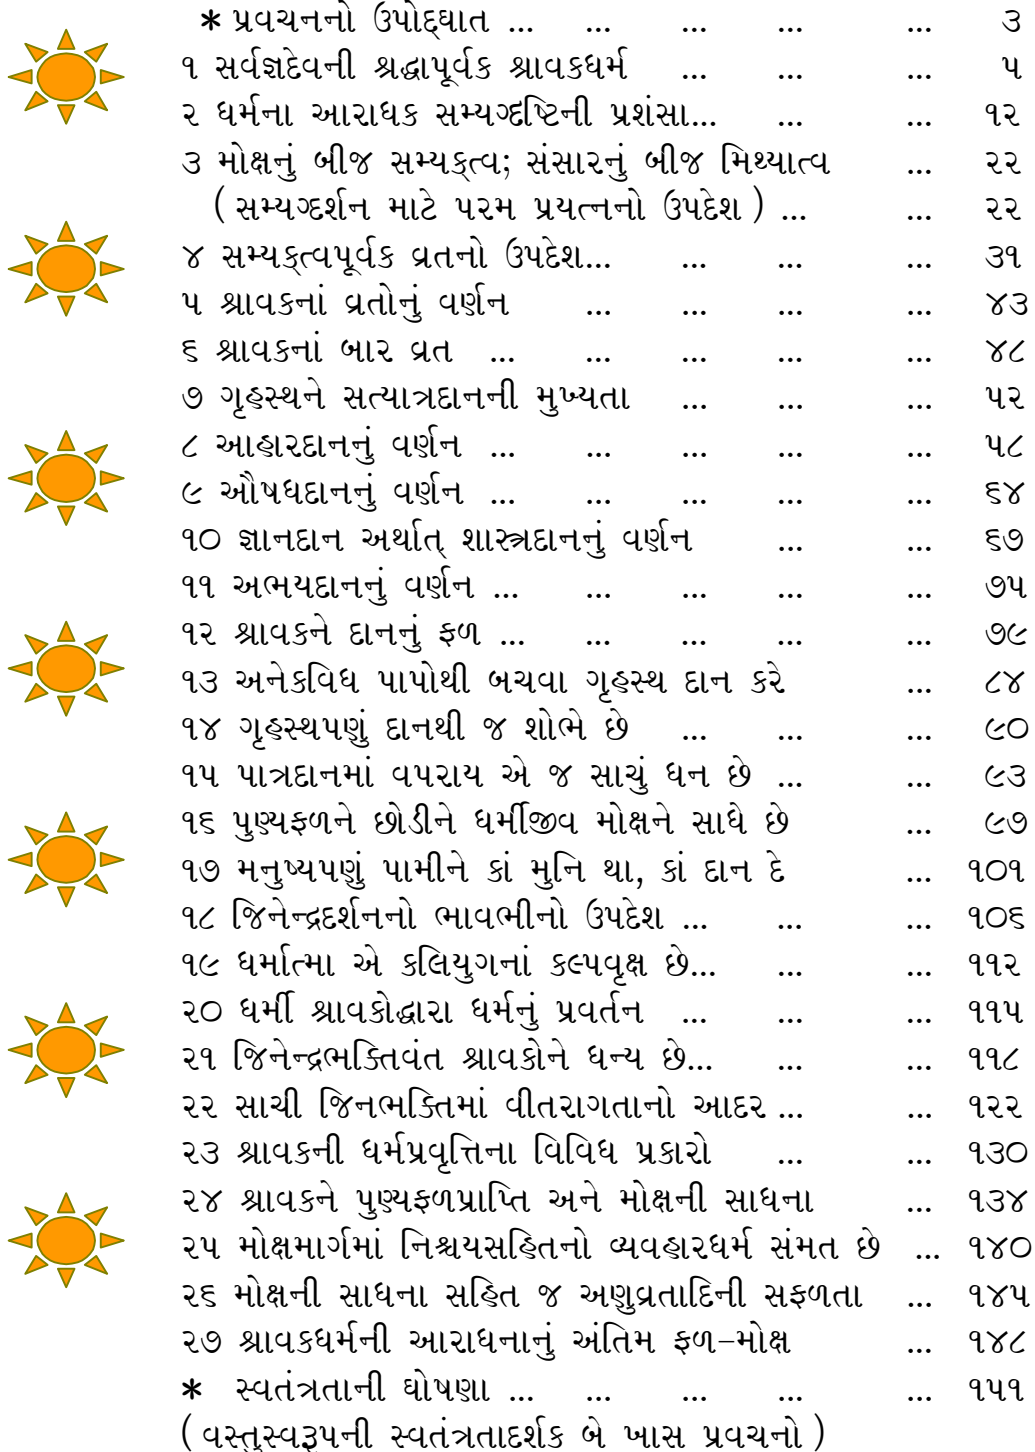 * પ્રવચનનો ઉપોદ્ઘાત ... ... ... ... ... ૩
૧ સર્વજ્ઞદેવની શ્રદ્ધાપૂર્વક શ્રાવકધર્મ ... ... ... ૫
૨ ધર્મના આરાધક સમ્યગ્દષ્ટિની પ્રશંસા... ... ... ૧૨
૩ મોક્ષનું બીજ સમ્યક્ત્વ; સંસારનું બીજ મિથ્યાત્વ ... ૨૨
( સમ્યગ્દર્શન માટે પરમ પ્રયત્નનો ઉપદેશ ) ... ... ૨૨
૪ સમ્યક્ત્વપૂર્વક વ્રતનો ઉપદેશ... ... ... ... ૩૧
૫ શ્રાવકનાં વ્રતોનું વર્ણન ... ... ... ... ૪૩
૬ શ્રાવકનાં બાર વ્રત ... ... ... ... ... ૪૮
૭ ગૃહસ્થને સત્યાત્રદાનની મુખ્યતા ... ... ... ૫૨
૮ આહારદાનનું વર્ણન ... ... ... ... ... ૫૮
૯ ઔષધદાનનું વર્ણન ... ... ... ... ... ૬૪
૧૦ જ્ઞાનદાન અર્થાત્ શાસ્ત્રદાનનું વર્ણન ... ... ૬૭
૧૧ અભયદાનનું વર્ણન ... ... ... ... ... ૭૫
૧૨ શ્રાવકને દાનનું ફળ ... ... ... ... ... ૭૯
૧૩ અનેકવિધ પાપોથી બચવા ગૃહસ્થ દાન કરે ... ૮૪
૧૪ ગૃહસ્થપણું દાનથી જ શોભે છે ... ... ... ૯૦
૧૫ પાત્રદાનમાં વપરાય એ જ સાચું ધન છે ... ... ૯૩
૧૬ પુણ્યફળને છોડીને ધર્મીજીવ મોક્ષને સાધે છે ... ૯૭
૧૭ મનુષ્યપણું પામીને કાં મુનિ થા, કાં દાન દે ... ૧૦૧
૧૮ જિનેન્દ્રદર્શનનો ભાવભીનો ઉપદેશ ... ... ... ૧૦૬
૧૯ ધર્માત્મા એ કલિયુગનાં કલ્પવૃક્ષ છે... ... ... ૧૧૨
૨૦ ધર્મી શ્રાવકોદ્ધારા ધર્મનું પ્રવર્તન ... ... ... ૧૧૫
૨૧ જિનેન્દ્રભક્તિવંત શ્રાવકોને ધન્ય છે... ... ... ૧૧૮
૨૨ સાચી જિનભક્તિમાં વીતરાગતાનો આદર ... ... ૧૨૨
૨૩ શ્રાવકની ધર્મપ્રવૃત્તિના વિવિધ પ્રકારો ... ... ૧૩૦
૨૪ શ્રાવકને પુણ્યફળપ્રાપ્તિ અને મોક્ષની સાધના ... ૧૩૪
૨૫ મોક્ષમાર્ગમાં નિશ્ચયસહિતનો વ્યવહારધર્મ સંમત છે ... ૧૪૦
૨૬ મોક્ષની સાધના સહિત જ અણુવ્રતાદિની સફળતા ... ૧૪૫
૨૭ શ્રાવકધર્મની આરાધનાનું અંતિમ ફળ–મોક્ષ ... ૧૪૮
* સ્વતંત્રતાની ઘોષણા ... ... ... ... ... ૧૫૧
( વસ્તુસ્વરૂપની સ્વતંત્રતાદર્શક બે ખાસ પ્રવચનો )